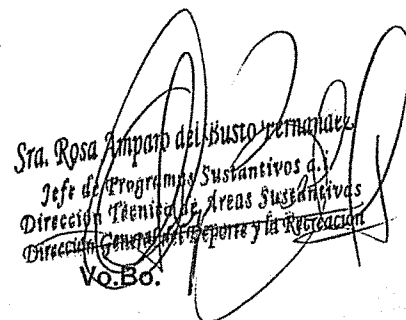 Sra. Rosa Amparo del Busto Fernandez
Jefe de Programas Sustantivos a.i.
Dirección Técnica de Areas Sustantivas
Dirección General del Deporte y la Recreación
Vo.Bo.